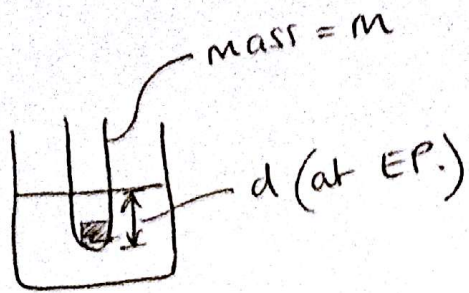 mass = m
d (at EP.)